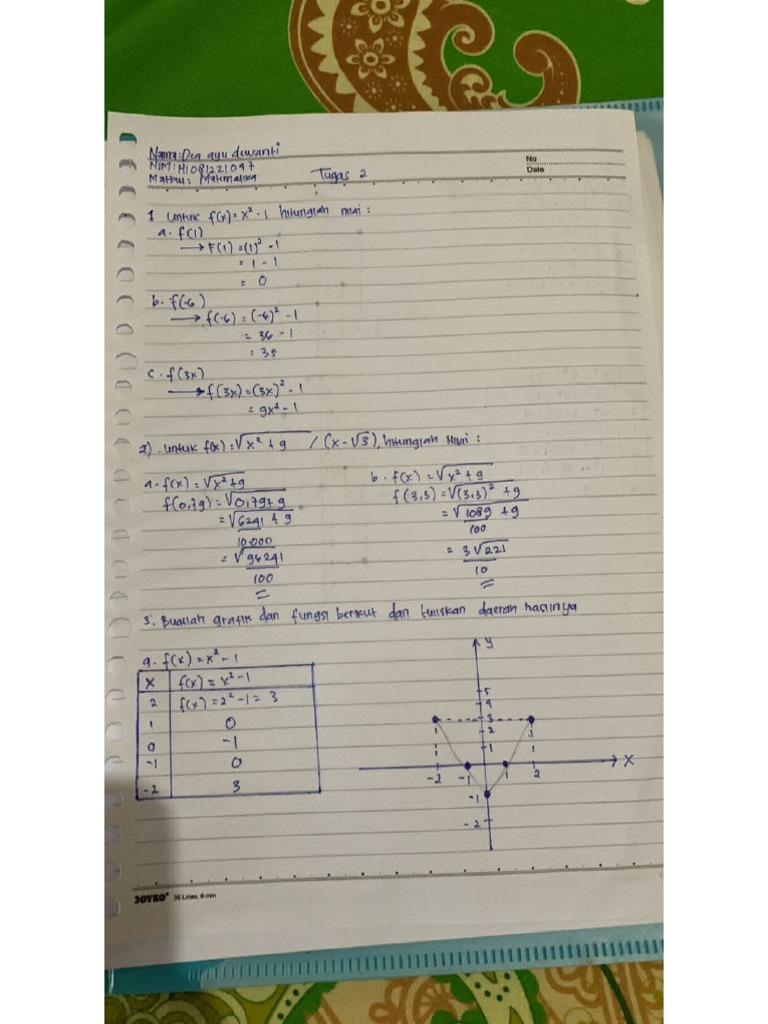 Nama: Dea ayu dewanti
NIM: H1081221047
Matkul: Matematika
Tugas 2
No
Date
1 Untuk f(x) = x² - 1 hitunglah nilai :
a. f(1)
→ F(1) = (1)² - 1
= 1 - 1
= 0
b. f(-6)
→ f(-6) = (-6)² - 1
= 36 - 1
= 35
c. f(3x)
→ f(3x) = (3x)² - 1
= 9x² - 1
2). Untuk f(x) = √x² + 9 / (x - √3), hitunglah Nilai :
a. f(x) = √x² + 9
f(0,79) = √0,79 + 9
= √6241 + 9
10.000
= √96241
100
b. f(x) = √x² + 9
f(3,3) = √(3,3)² + 9
= √1089 + 9
100
= 3√221
10
3. Buatlah grafik dan fungsi berikut dan tuliskan daerah hasilnya
a. f(x) = x² - 1
x f(x) = x² - 1
2 f(x) = 2² - 1 = 3
1 0
0 -1
-1 0
-2 3
y
5
4
3
2
1
-2 -1 1 2 X
-1
-2
JOYKO 36 Lines, 6 mm